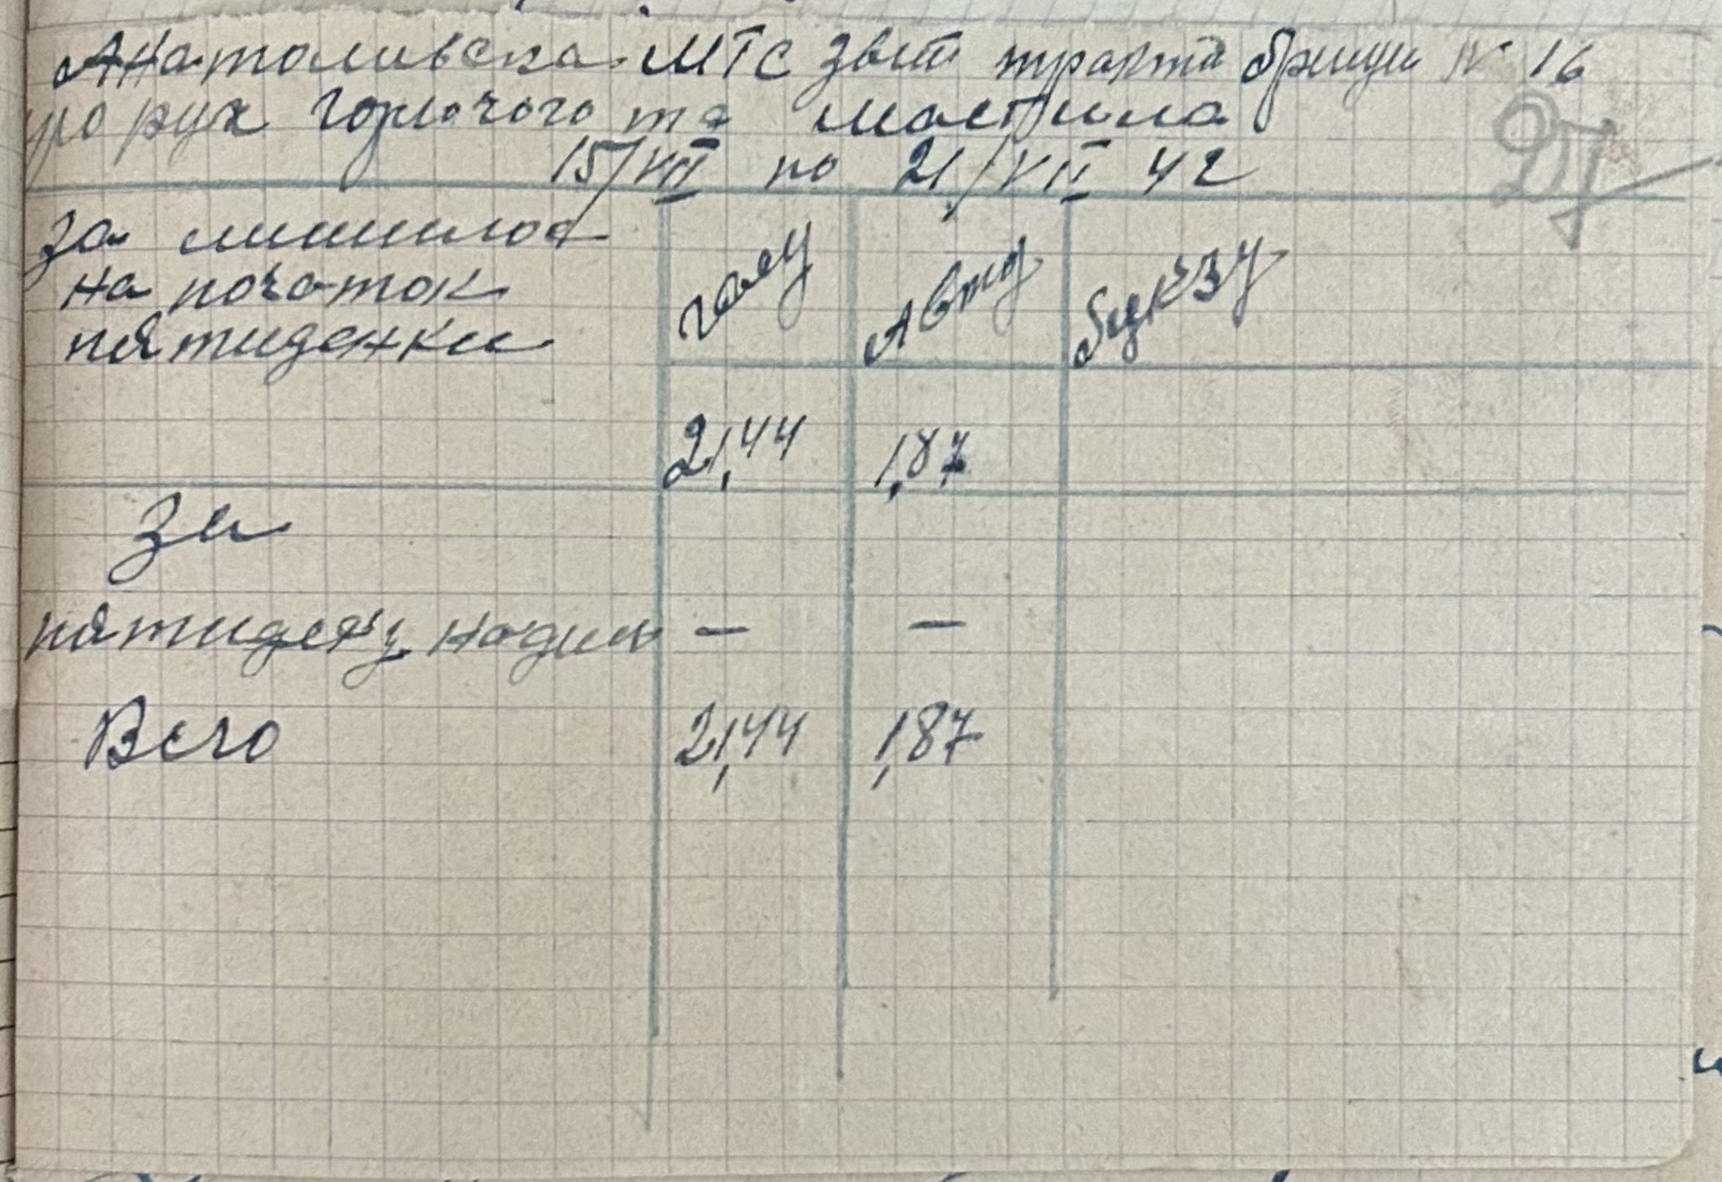 Анатоливска МТС звіт тракто бригди № 16
про рух горючого та мастила
15/VII по 21/VII 42
за лишилос
на початок
пятиденки
Авто
21,44 1,87
За
пятиденку надій
— —
Всго 21,44 1,87